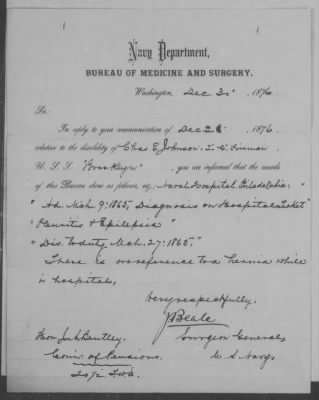 Navy Department,
BUREAU OF MEDICINE AND SURGERY.
Washington, Dec 30 1876
Sir:
In reply to your communication of Dec 21 1876
relative to the disability of Chas E Johnson, 2" C. Fireman
U. S. S. "Brooklyn", you are informed that the records
of this Bureau show as follows, viz: Naval Hospital Philadelphia:
" Ad. Mch. 9: 1865, Diagnosis on Hospital ticket"
" & Epilepsia "
" Dis. to duty Mch. 27: 1865."
There is no reference to a hernia while
in hospital,
Very respectfully,
J Beale
Surgeon General
U. S. Navy.
Hon. J. A. Bentley.
Com'r. of Pensions.